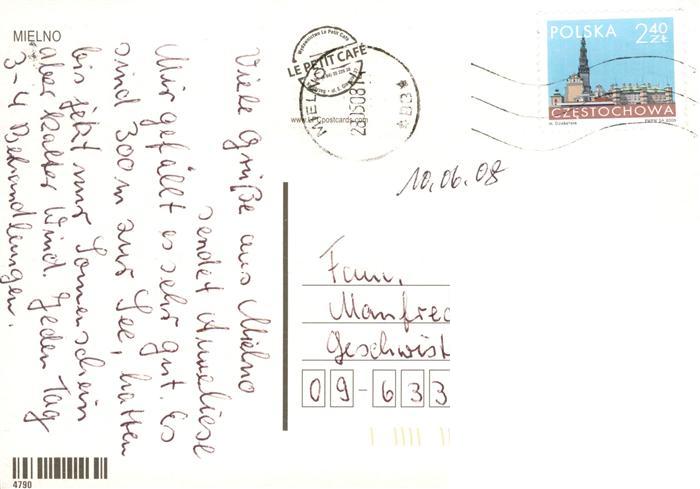 MIELNO
Viele Grüße aus Mielno
sendet Anneliese
Mir gefällt es sehr gut. Es
sind 300 m zur See, hatten
bis jetzt nur Sonnenschein
aber kalter Wind. Jeden Tag
3-4 Behandlungen.
4790
LE PETIT CAFÉ
MIELNO
28.05.08
POLSKA 2,40 ZŁ
CZĘSTOCHOWA
10.06.08
Fam.
Manfred
Geschwist
09-633